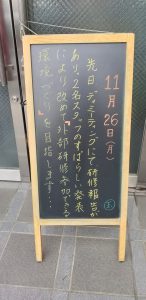 11月26日(月)
先日、ティーミーティングにて研修報告が
あり、2名スタッフのすばらしい発表
により改めて外部研修参加できる
環境づくりを目指します…